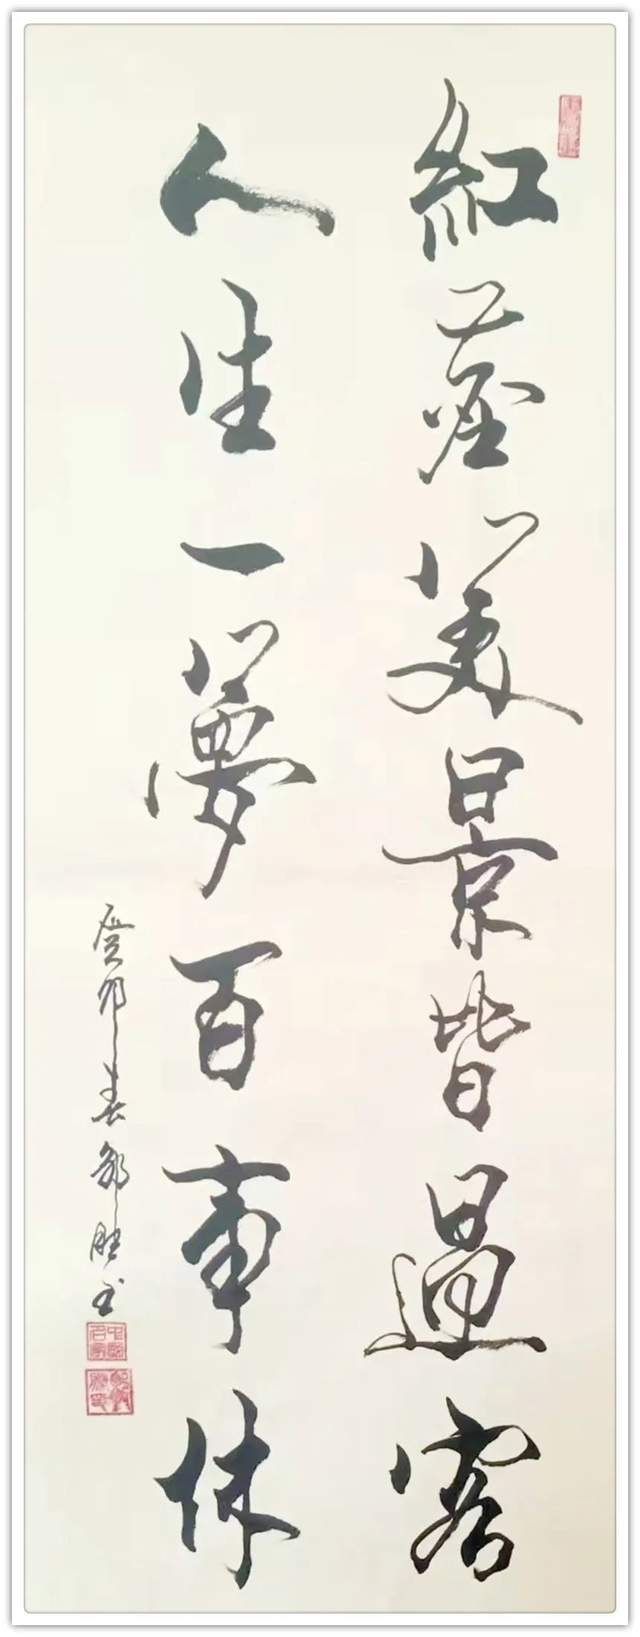 紅塵美景皆過客
人生一夢百事休
癸卯春胜书